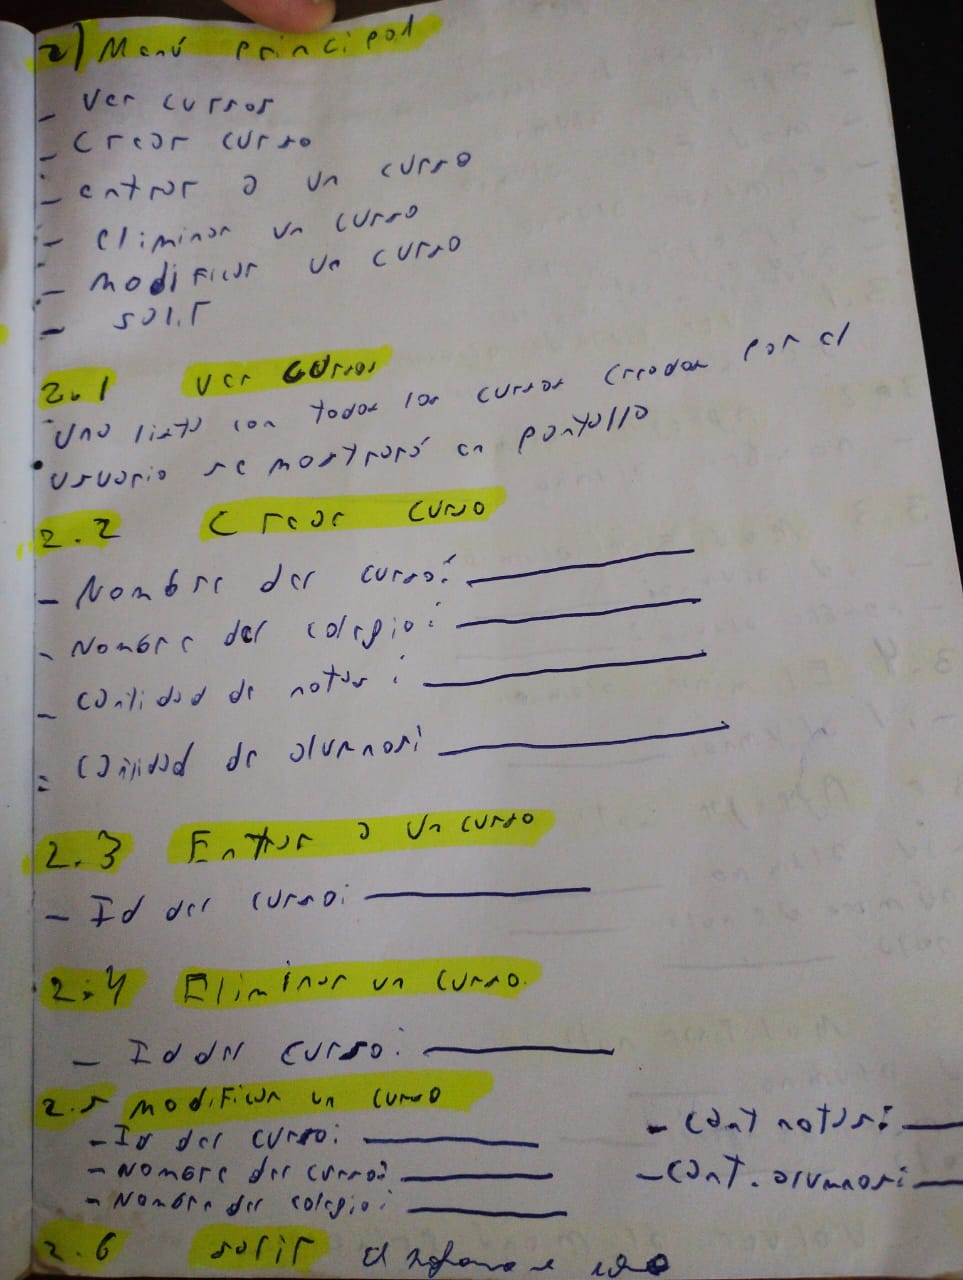 2) Menú principal
- Ver cursos
- Crear curso
- entrar a un curso
- eliminar un curso
- modificar un curso
- salir
2.1 ver cursos
Una lista con todos los cursos creados por el
usuario se mostrará en pantalla
2.2 Crear curso
- Nombre del curso:
- Nombre del colegio:
- Cantidad de notas:
- Cantidad de alumnos:
2.3 Entrar a un curso
- Id del curso:
2.4 Eliminar un curso
- Id del curso:
2.5 modificar un curso
- Id del curso:
- Nombre del curso:
- Nombre del colegio:
- Cant notas:
- Cant. alumnos:
2.6 salir el